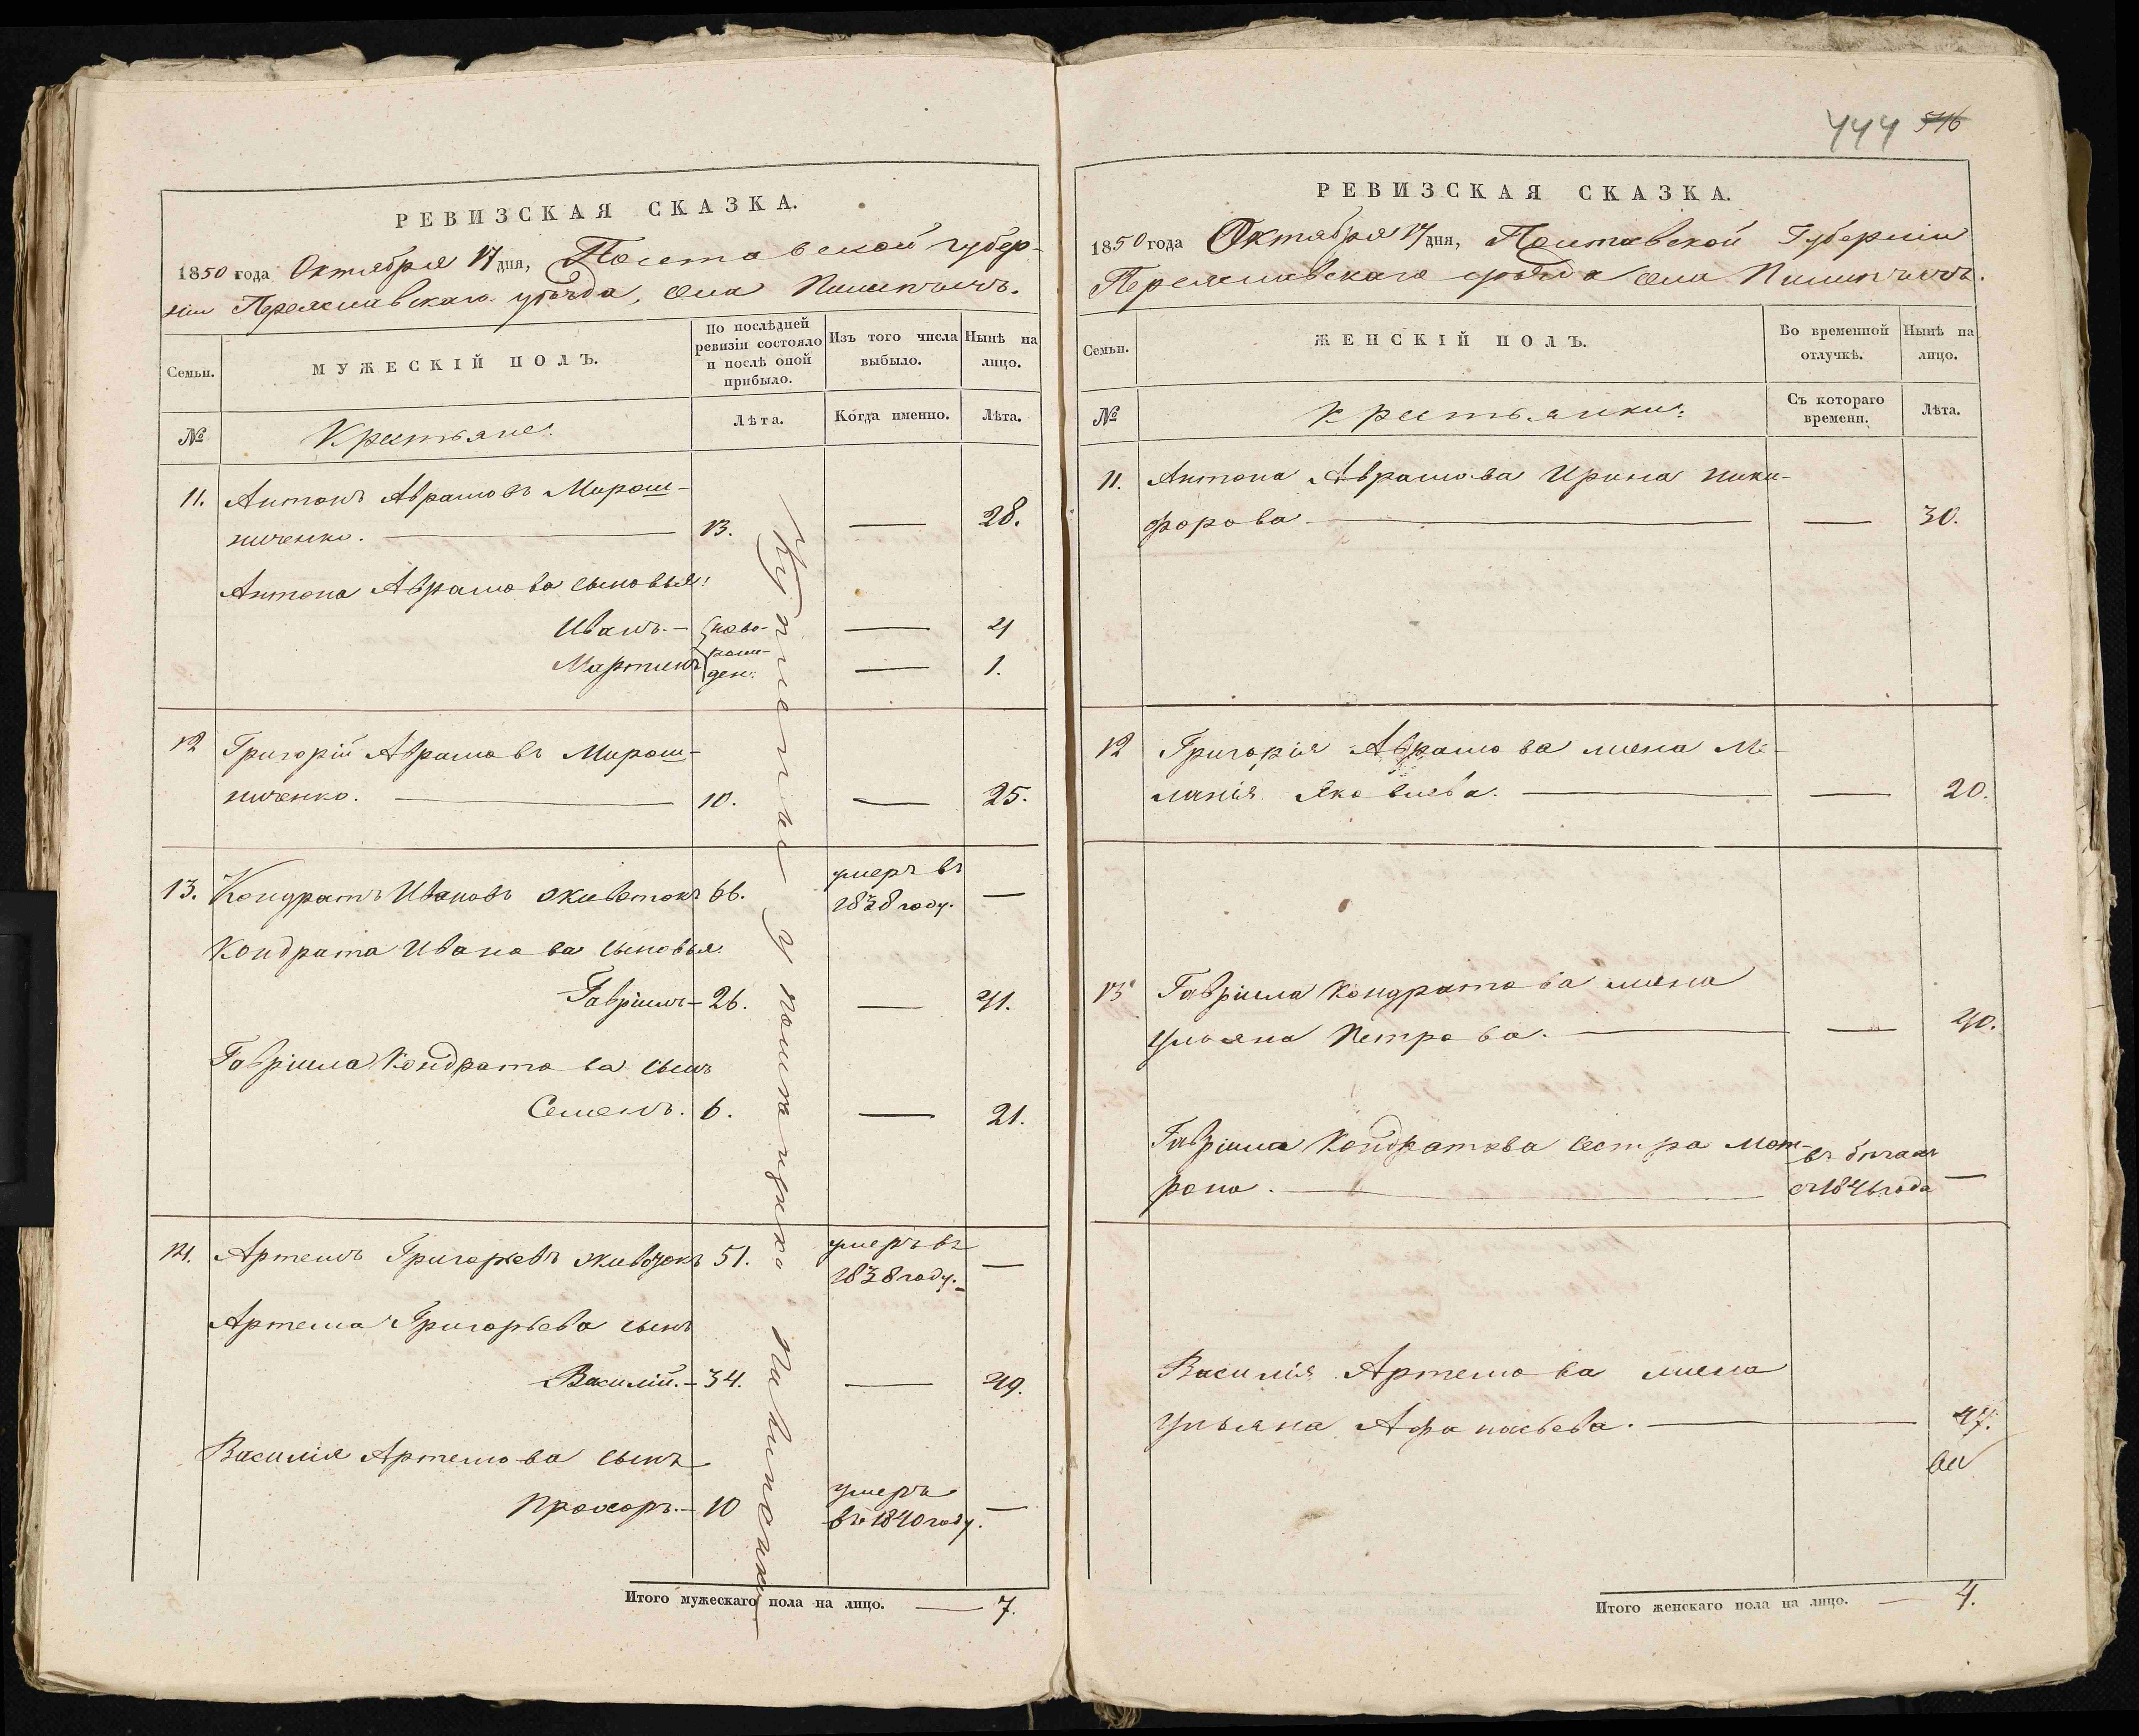 444 546
РЕВИЗСКАЯ СКАЗКА.
1850 года Октября 17 дня, Полтавской губер-
ніи Переяславскаго уѣзда, села
Семьи.
МУЖЕСКІЙ ПОЛЪ.
По послѣдней ревизіи состояло и послѣ оной прибыло.
Изъ того числа выбыло.
Нынѣ на лицо.
№
Крестьяне.
Лѣта.
Когда именно.
Лѣта.
11. Антонъ Аврамовъ Мирош-
ниченко. — 13. — 28.
Антона Аврамова сыновья:
Иванъ. — ново- — 4
Мартинъ рож- ден. — 1.
12 Григорій Аврамовъ Мирош-
ниченко. — 10. — 25.
13. Кондратъ Ивановъ 66. умеръ въ 1838 году. —
Кондрата Иванова сыновья.
Гавріилъ — 26. — 41.
Гавріила Кондратова сынъ
Семенъ. 6. — 21.
14. Артемъ Григорьевъ 51. умеръ въ 1838 году. —
Артема Григорьева сынъ
Василій. — 34. — 49.
Василія Артемова сынъ
Прохоръ. — 10 умеръ въ 1840 году. —
Купленны у помещика
Итого мужескаго пола на лицо. — 7.
РЕВИЗСКАЯ СКАЗКА.
1850 года Октября 17 дня, Полтавской Губерніи
Переяславскаго уѣзда села
Семьи.
ЖЕНСКІЙ ПОЛЪ.
Во временной отлучкѣ.
Нынѣ на лицо.
№
Крестьянки:
Съ котораго времени.
Лѣта.
11. Антона Аврамова Ирина Ники-
форова — — 30.
12 Григорія Аврамова жена Ме-
ланія Яковлева. — — 20.
13 Гавріила Кондратова жена
Ульяна Петрова. — — 40.
Гавріила Кондратова сестра Мот-
рона. — въ бѣгахъ съ 1846 года —
Василія Артемова жена
Ульяна Афанасьева. — 47.
Итого женскаго пола на лицо. — 4.